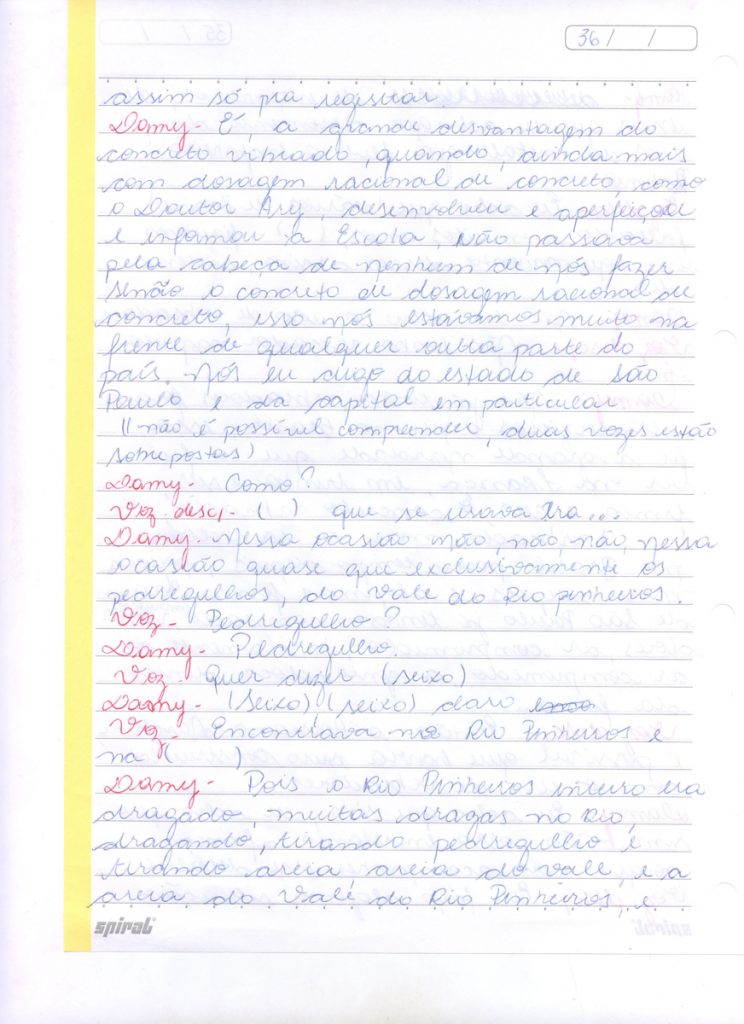 36 /    /
assim só pra registrar
Damy - É, a grande desvantagem do
concreto vibrado, quando, ainda mais
com dosagem racional de concreto, como
o Doutor Ary, desenvolveu e aperfeiçoou
e informou a Escola, não passava
pela cabeça de nenhum de nós fazer
senão o concreto de dosagem racional de
concreto, isso nós estávamos muito na
frente de qualquer outra parte do
país. Nós eu digo do estado de São
Paulo e da capital em particular
(( não é possível compreender, duas vozes estão
sobrepostas)
Damy - Como?
Voz desc. - (  ) que se usava era...
Damy - Nessa ocasião não, não, não, nessa
ocasião quase que exclusivamente os
pedregulhos, do Vale do Rio pinheiros.
Voz - Pedregulho?
Damy - Pedregulho.
Voz - Quer dizer (seixo)
Damy - (Seixo) (seixo) claro
Voz - Encontrava no Rio Pinheiros e
na (      )
Damy - Pois o Rio Pinheiros inteiro era
dragado, muitas dragas no Rio,
dragando, tirando pedregulho e
tirando areia areia do vale, e a
areia do Vale do Rio Pinheiros, e
spiral